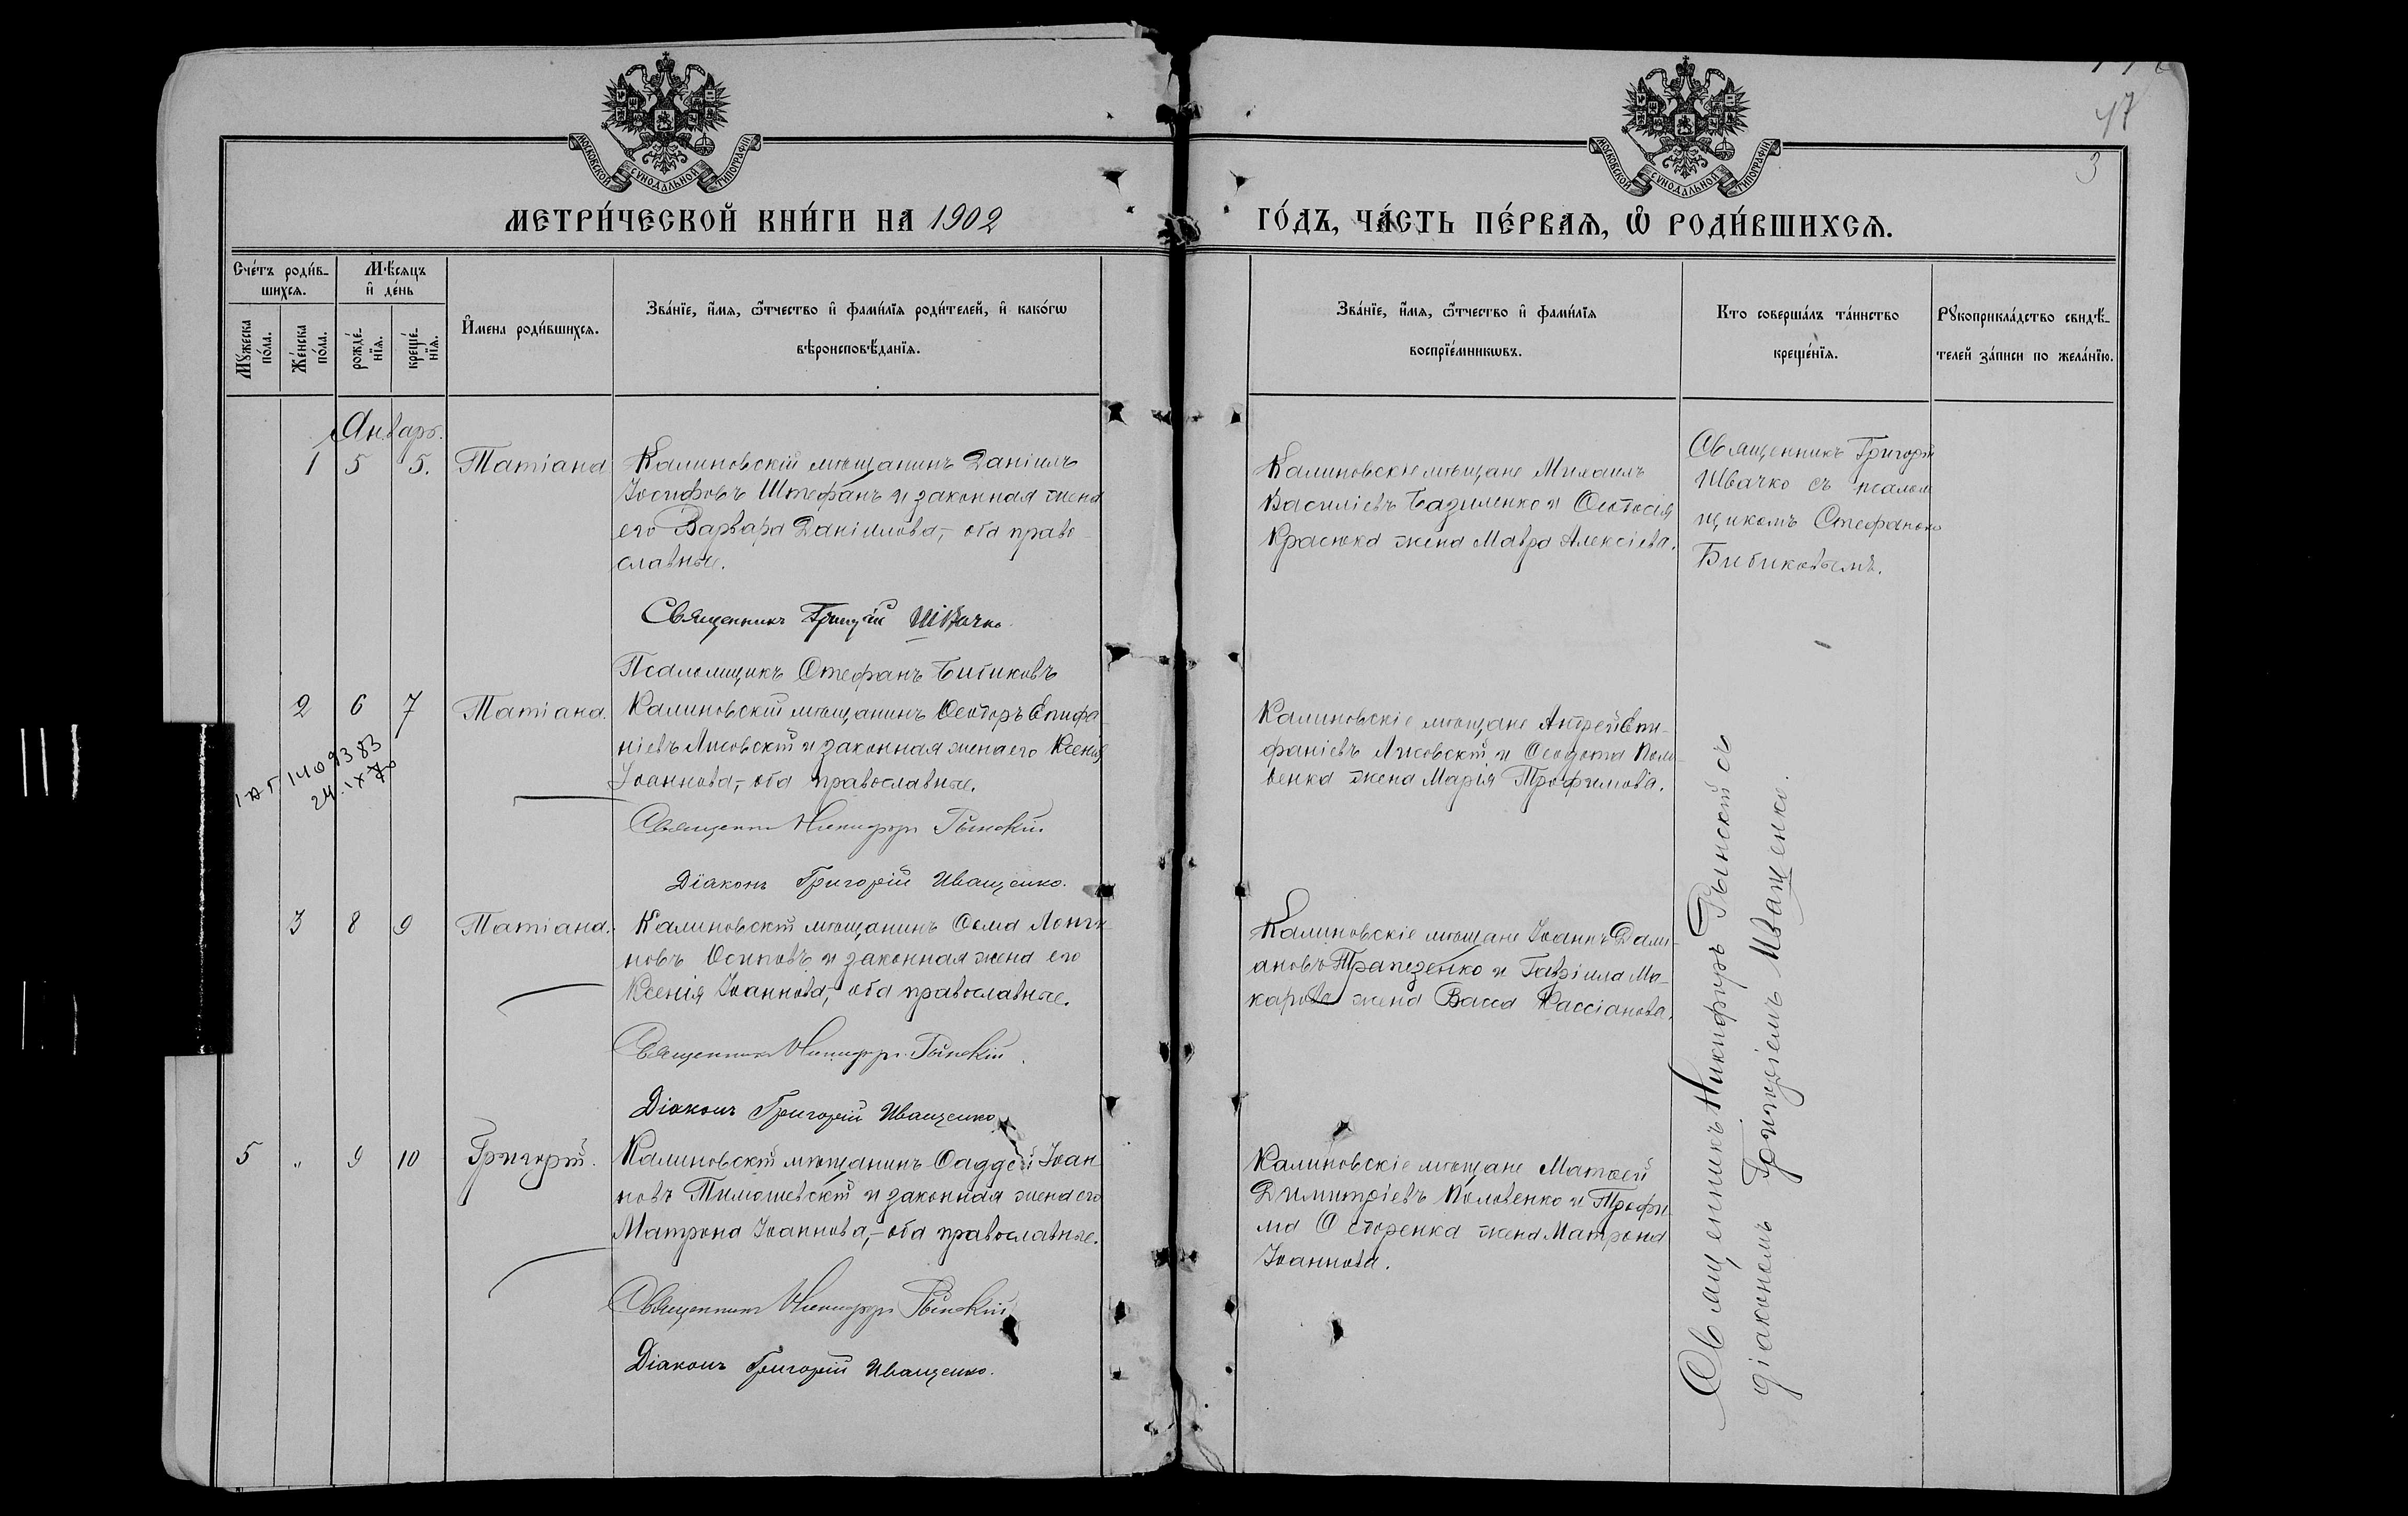 47
3
МОСКОВСКОЙ СѴНОДАЛЬНОЙ ТИПОГРАФІИ
МОСКОВСКОЙ СѴНОДАЛЬНОЙ ТИПОГРАФІИ
МЕТРИ́ЧЕСКОЙ КНИ́ГИ НА 1902
ГО́ДЪ, ЧА́СТЬ ПЕ́РВАѦ, Ѿ РОДИ́ВШИХСѦ.
Сче́тъ роди́в-
шихсѧ.
Мѣ́сѧцъ
и҆ де́нь
Мꙋ́жеска
по́ла.
Же́нска
по́ла.
рожде́-
нїѧ.
креще́-
нїѧ.
И҆мена роди́вшихсѧ.
Зва́нїе, и҆́мѧ, ѻ҆́тчество и҆ фами́лїѧ роди́телей, и҆ како́гѡ
вѣроисповѣ́данїѧ.
Зва́нїе, и҆́мѧ, ѻ҆́тчество и҆ фами́лїѧ
воспрїе́мникѡвъ.
Кто соверша́лъ та́инство
креще́нїѧ.
Рꙋкоприкла́дство свидѣ́-
телей за́писи по жела́нїю.
Январь.
1 5 5. Татіана
Калиновскій мѣщанинъ Даніилъ
Іосифовъ Штефанъ и законная жена
его Варвара Даніилова,- оба право-
славные.
Священникъ Григорій Швачко
Псаломщикъ Стефанъ Бибиковъ
Калиновскіе мѣщане Михаилъ
Василіевъ Базиленко и Ѳеодосія
Красюка жена Мавра Алексіева.
Священникъ Григорій
Швачко съ псалом
щикомъ Стефаномъ
Бибиковымъ.
2 6 7 Татіана.
Калиновскій мѣщанинъ Ѳеодоръ Епифа-
ніевъ Лисовскій и законная жена его Ксенія
Іоаннова,- оба православные.
Священникъ Никифоръ Рынскій
Діаконъ Григорій Иващенко.
Калиновскіе мѣщане Андрей Епи-
фаніевъ Лисовскій и Ѳеодота Поло-
венка жена Марія Трофимова.
1409383
24.IX 70
3 8 9 Татіана.
Калиновскій мѣщанинъ Ѳома Лонги-
новъ Осиповъ и законная жена его
Ксенія Іоаннова,- оба православные.
Священникъ Никифоръ Рынскій.
Діаконъ Григорій Иващенко
Калиновскіе мѣщане Іоаннъ Дами-
ановъ Трапезенко и Гавріила Ма-
карова жена Васса Кассіанова.
5 " 9 10 Григорій.
Калиновскій мѣщанинъ Ѳаддей Іоан-
новъ Тимошевскій и законная жена его
Матрона Іоаннова,- оба православные.
Священникъ Никифоръ Рынскій
Діаконъ Григорій Иващенко.
Калиновскіе мѣщане Матѳей
Димитріевъ Половенко и Трофи-
ма Ѳедоренка жена Матрона
Іоаннова.
Священникъ Никифоръ Рынскій съ
діакономъ Григоріемъ Иващенко.